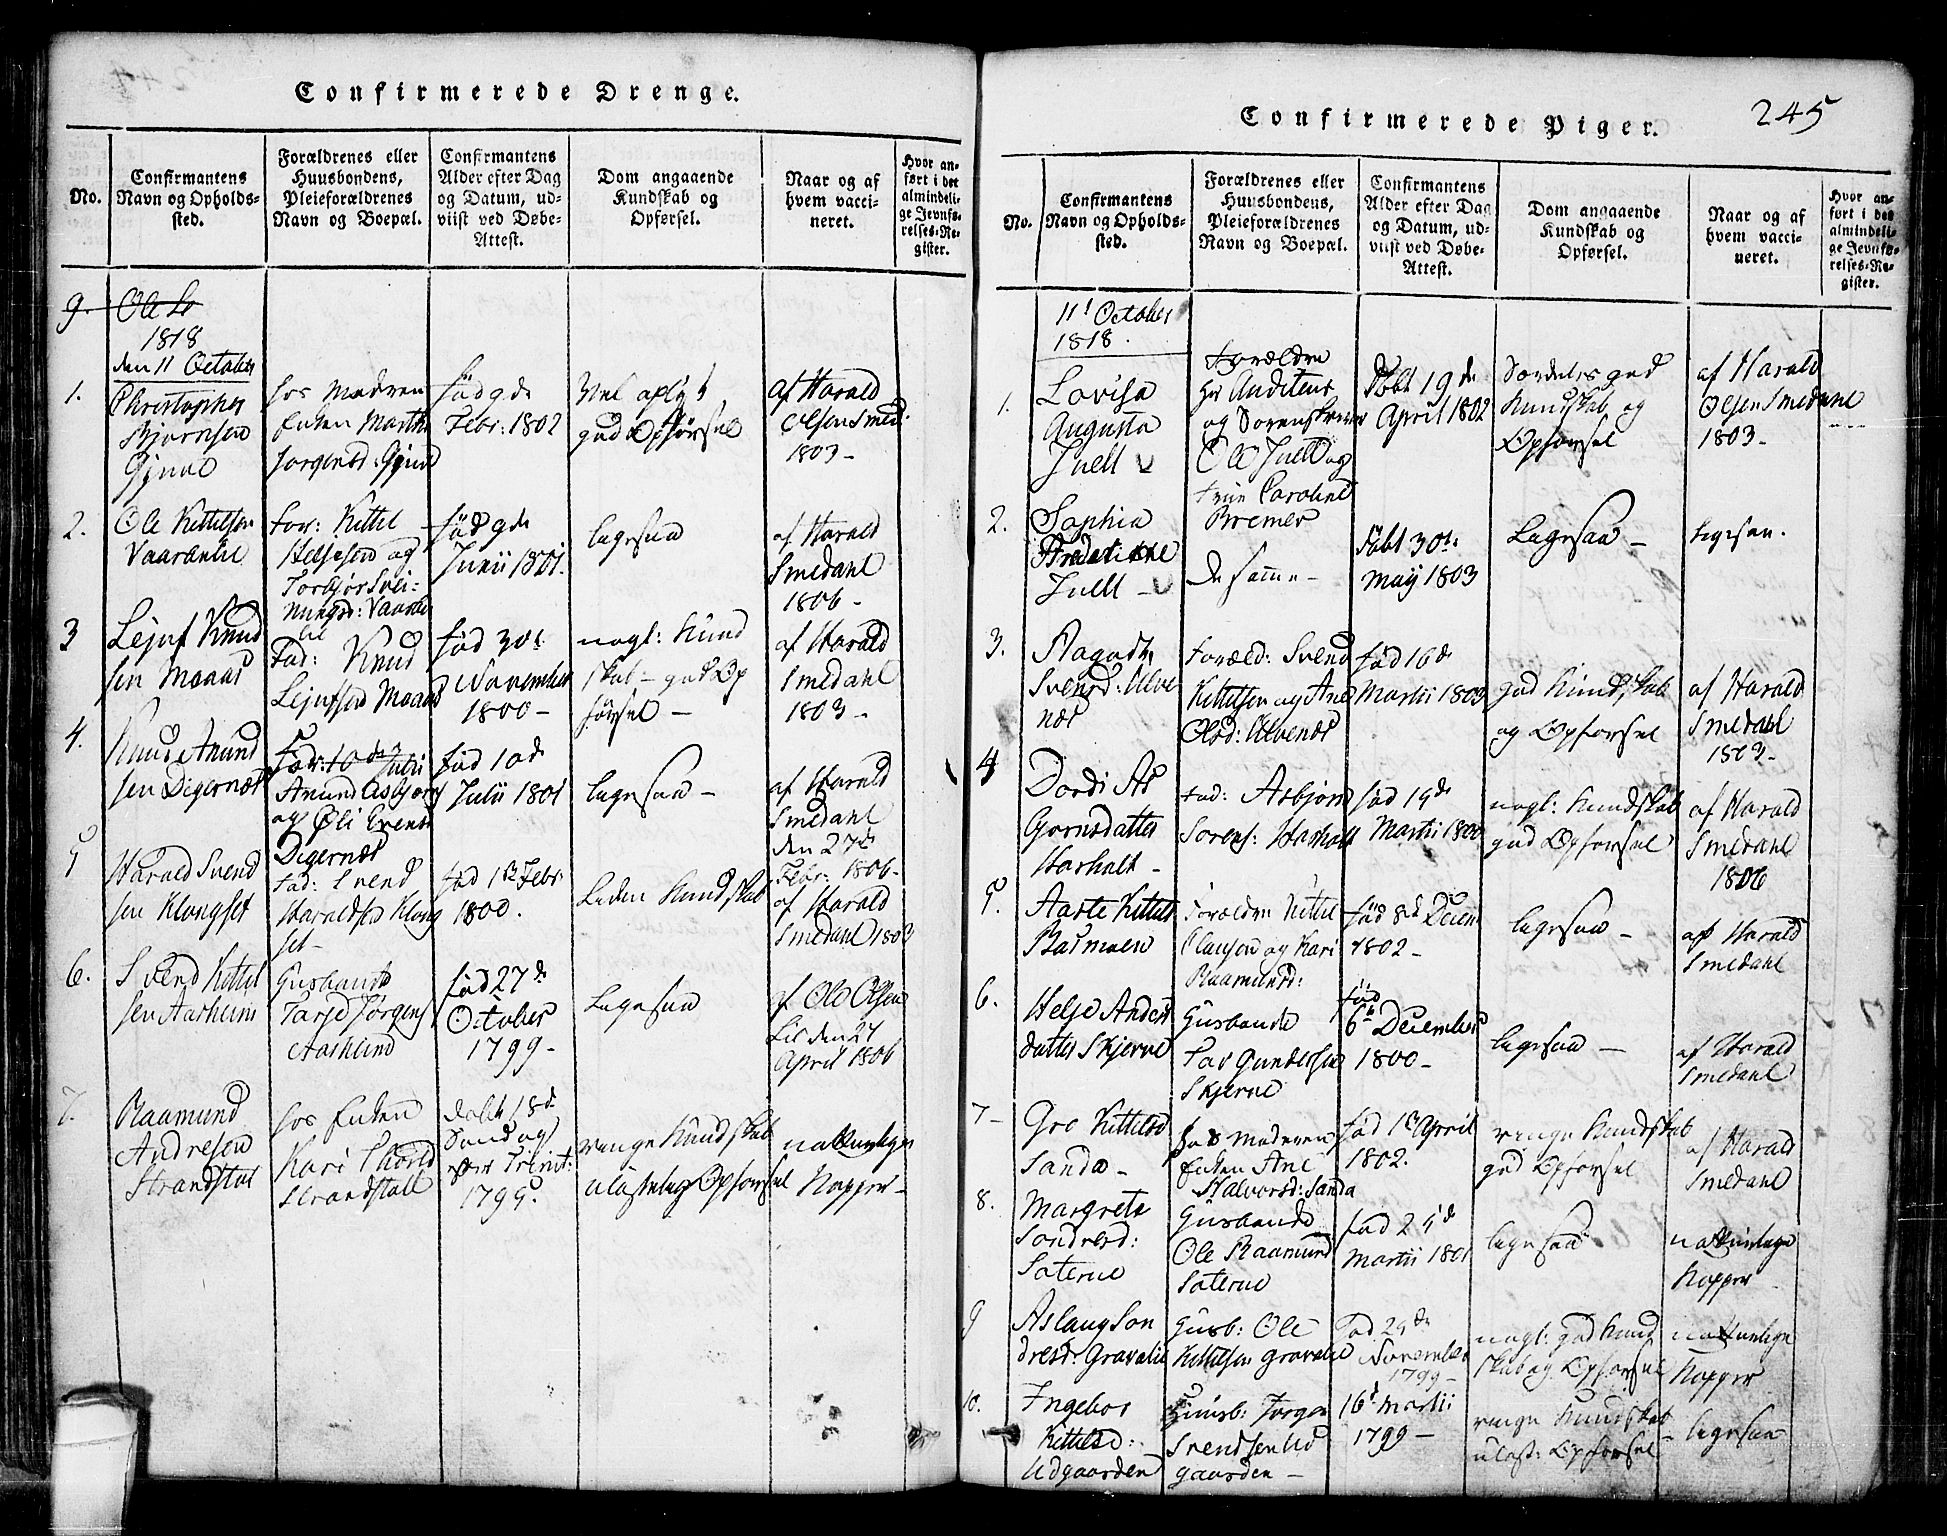 Confirmerede Drenge.
No.
Confirmantens
Navn og Opholds-
sted.
Forældrenes eller
Huusbondens,
Pleieforældrenes
Navn og Boepæl.
Confirmantens
Alder efter Dag
og Datum, ud-
viist ved Døbe-
Attest.
Dom angaaende
Kundskab og
Opførsel.
Naar og af
hvem vacci-
neret.
Hvor an-
ført i det
almindeli-
ge Jevnfø-
relses-Re-
gister.
9.
1818
den 11 October
1.
Christopher
Bjørnsen
hos Moderen
Enken Marthe
Jørgensd:
fød 9de
Febr: 1802
Vel oplyst
god Opførsel
af Harald
Olsen Smed:
1803 -
2.
Ole Kittilsen
Vaarenlie
For: Kittel
Helgesen og
Torbjør Svei-
nungsd: Vaaren
lie
fød 9de
Junii 1801.
ligesaa
af Harald
Smedahl
1806 -
3
Lejuf Knud
sen Monas
Fad: Knud
Lejufsen Monas
fød 30te
November
1800 -
nogl: Kund
skab - god Op
førsel -
af Harald
Smedahl
1803 -
4.
Knud Anund
sen Digernæs
Anund Asbjørns
og Øli Evens
Digernæs
fød 10de
Julii 1801
ligesaa -
af Harald
Smedahl
den 27de
Febr: 1806 -
5
Harald Svend
sen Klongset
Fad: Svend
Haraldsen Klong
set -
fød 1ste Febr
1800.
Liden Kundskab
af Harald
Smedahl 1803
6.
Svend Kittel
sen Aasheim
Huusbonde
Tarje Jørgens
Aasheim
fød 27de
October
1799 -
Ligesaa
af Ole Olsen
Lie den 24
April 1806
7.
Raamund
Andresen
Strandstøl
hos Enken
Kari Thorsd
Strandstøll
døbt 18de
Søndag
efter Trinit:
1799.
ringe Kundskab
ulastelig Opførsel
naturlige
Kopper -
Confirmerede Piger.
245
No.
Confirmantens
Navn og Opholds-
sted.
Forældrenes eller
Huusbondens,
Pleieforældrenes
Navn og Boepæl.
Confirmantens
Alder efter Dag
og Datum, ud-
viist ved Døbe-
Attest.
Dom angaaende
Kundskab og
Opførsel.
Naar og af
hvem vacci-
neret.
Hvor an-
ført i det
almindeli-
ge Jevnfø-
relses-Re-
gister.
11t October
1818.
1.
Lovisa
Augusta
Juell
Forældre
Hr Auditeur
og Sorenskriver
Ole Juell og
Trine Caroline
Bremer
Døbt 19de
April 1802
Særdeles god
Kundskab og
Opførsel
af Harald
Olsen Smedahl
1803 -
2.
Sophia
Frederikke
Juell -
De samme -
Døbt 30te
May 1803
Ligesaa -
ligesaa.
3.
Ragndi
Svensd: Ulve
næs
Foræld: Svend
Kittelsen og Ane
Olsd: Ulvenæs
fød 16de
Martii 1803
god Kundskab
og Opførsel
af Harald
Smedahl
1803 -
4
Dordi As
gjørnsdatter
Harholt -
Fad: Asbjørn
Sørens: Harholt
fød 19de
Martii 1800
nogl: Kundskab
god Opførsel
af Harald
Smedahl
1806
5.
Aaste Kittels
Forældre Kittel
Clausen og Kari
Raamunds:
fød 8de Decem
1802 -
ligesaa -
af Harald
Smedahl
6.
Helje Anders
datter Skjerve
Huusbonde
Tov Gundersen
Skjerve
fød
6te December
1800 -
ligesaa -
af Harald
Smedahl
7 -
Gro Kittelsd
Sanda -
hos Moderen
Enken Ane
Halvorsd: Sanda
fød 1ste April
1802.
ringe Kundskab
god Opførsel
af Harald
Smedahl
8.
Margrete
Sondresd:
Saterne
Huusbonde
Ole Raamund
Saterne
fød 25de
Martii 1801
ligesaa
naturlige
Kopper
9
Aslaug Son
dresd: Gravalie
Huusb: Ole
Kittilsen Gravalie
Fød 29de
November
1799 -
nogl: god Kund
skab og Opførsel
naturlige
Kopper
10.
Ingebor
Kittelsd:
Udgaarden
Huusb: Jørgen
Svendsen Ud
gaarden -
16d Martii
1799 -
ringe Kundskab
ulast: Opførsel
ligesaa